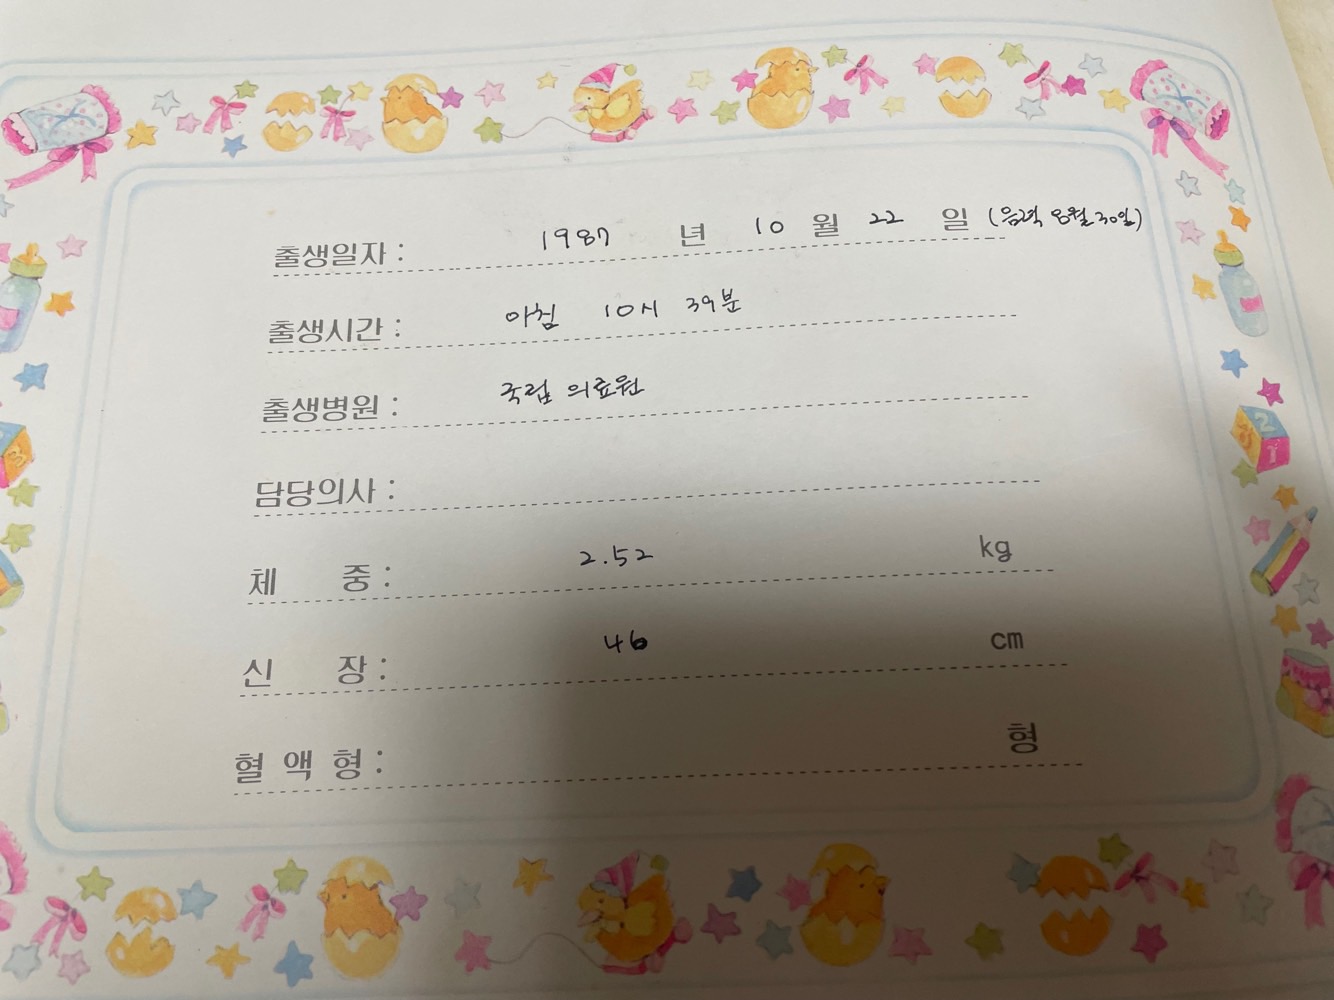 출생일자 : 1987 년 10 월 22 일 (음력 8월 30일)
출생시간 : 아침 10시 39분
출생병원 : 국립 의료원
담당의사 :
체 중 : 2.52 kg
신 장 : 46 cm
혈 액 형 : 형